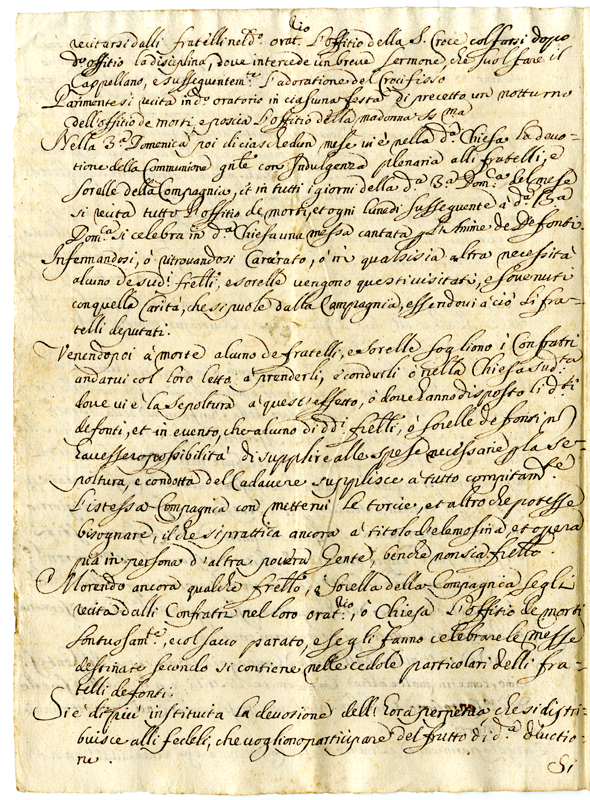 recitarsi dalli fratelli nel d.º orat.rio L'offitio della S. Croce col farsi dopo
d.º offitio la disciplina, dove intercede un breve sermone, che suol fare il
Cappellano, e susseguentem.te L'adoratione del Crocifisso
Parimente si recita in d.º oratorio in ciascuna festa di precetto un notturno
dell'offitio de morti, e poscia L'offitio della madonna SS.ma
Nella 3.ª Domenica poi di ciaschedun mese vi è nella d.ª Chiesa la devo-
tione della Communione gn̄le con Indulgenza plenaria alli fratelli, e
sorelle della Compagnia, et in tutti i giorni della d.ª 3.ª Dom.ca del mese
si recita tutto L'offitio de morti, et ogni lunedì susseguente à d.ª 3.ª
Dom.ca si celebra in d.ª Chiesa una messa cantata p L'Anime de Defonti.
Infermandosi, ò ritrovandosi Carcerato, ò in qualsisia altra necessità
alcuno de sud.i frelli, e sorelle vengono questi visitati, e sovenuti
con quella Carità, che si puole dalla Compagnia, essendovi a ciò Li fra-
telli deputati.
Venendo poi à morte alcuno de fratelli, e sorelle sogliono i Confratri
andarvi col loro letto à prenderli, e condurli ò nella Chiesa sud.ta
dove vi è la sepoltura a quest'effetto, ò dove hanno disposto li d.ti
defonti, et in evento, che alcuno di dd.i frelli, ò sorelle defonti nō
havessero possibilità di supplire alle spese necessarie p la se-
poltura, e condotta del Cadavere supplisce a tutto compitam.te
L'istessa Compagnia con mettervi Le torcie, et altro che potesse
bisognare, il che si prattica ancora a titolo d'elemosina et opera
pia in persona d'altra povera gente, benche non sia frello.
Morendo ancora qualche frello, ò sorella della Compagnia se gli
recita dalli Confratri nel loro orat.rio, ò Chiesa L'offitio de morti
sontuosam.te, e col sacco parato, e se gli fanno celebrare le messe
destinate secondo si contiene nelle cedole particolari delli fra-
telli defonti.
Si è di più instituita la devosione dell'hora perpetua che si distri-
buisce alli fedeli, che vogliono participare del frutto di d.ª
Si